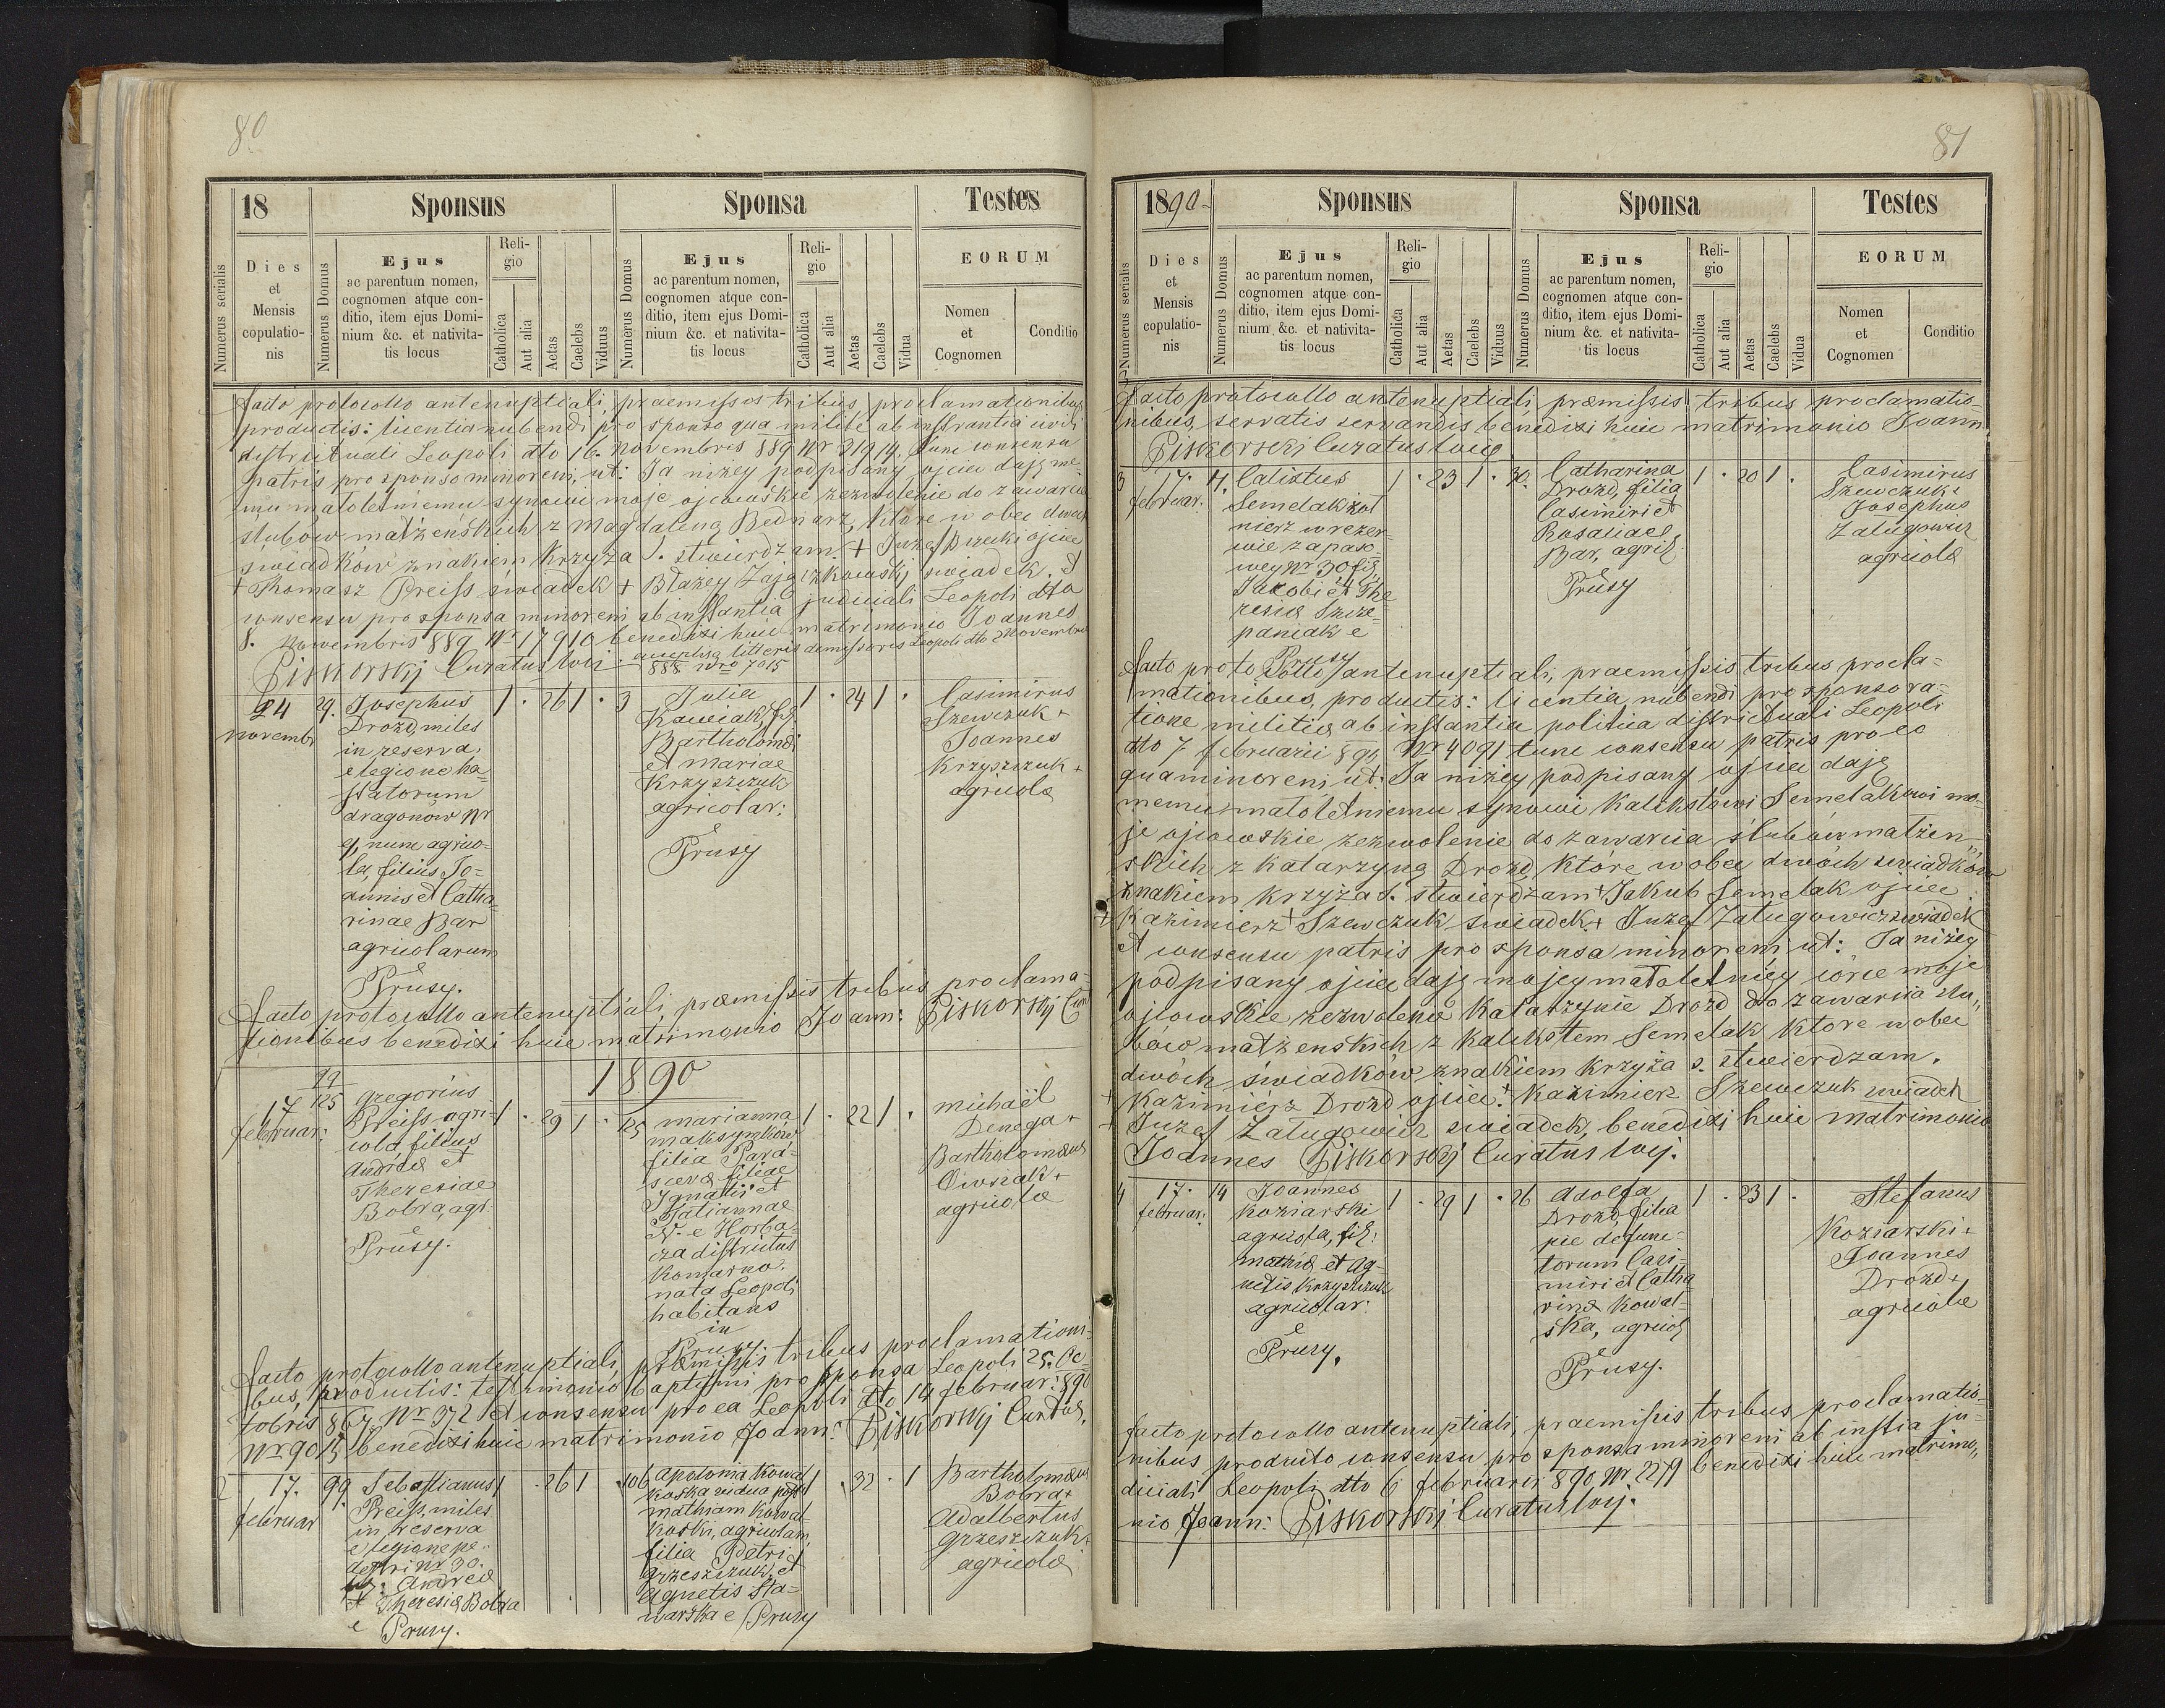 80
18
Sponsus
Sponsa
Testes
Numerus serialis
Dies
et
Mensis
copulatio-
nis
Numerus Domus
Ejus
ac parentum nomen,
cognomen atque con-
ditio, item ejus Domi-
nium &c. et nativita-
tis locus
Reli-
gio
Catholica
Aut alia
Aetas
Caelebs
Viduus
Numerus Domus
Ejus
ac parentum nomen,
cognomen atque con-
ditio, item ejus Domi-
nium &c. et nativita-
tis locus
Reli-
gio
Catholica
Aut alia
Aetas
Caelebs
Vidua
EORUM
Nomen
et
Cognomen
Conditio
facto protocollo antenuptiali, praemissis tribus proclamationibus
productis: licentia nubendi pro sponso qua milite ab instantia
districtuali Leopoli dto 16. novembris 889 Nr 31914. tum consensu
patris pro sponso minoreni, ut: Ja niżey podpisany ojciec daję me-
mu małoletniemu synowi moje ojcowskie zezwolenie do zawarcia
ślubów małżeńskich z Magdaleną Bednarz, które w obec dwóch
świadków znakiem krzyża ś. stwierdzam. + Józef ojciec
+ Thomasz Preiss świadek + Błażey Zajączkowski świadek. et
consensu pro sponsa minoreni ab instantia judiciali Leopoli dto
8. novembris 889 Nr 17910 benedixi huic matrimonio Joannes
Piskorskj Curatus loci.
acceptis litteris dimissoris Leopoli dto 2 Novembris
888 nro 7015
24
novembr
29.
Josephus
Drozd, miles
in reserva
e legione ha-
statorum
dragonów Nr
9, nunc agrico-
la, filius Jo-
annis et Catha-
rinae Bar
agricolarum
e
Prusy.
1 · 26 1 ·
3
Julia
Kawiak, fil.
Bartholomei
et mariae
Krzyszczuk
agricolar:
e
Prusy
1 · 24 1 ·
Casimirus
Szewczuk +
Joannes
Krzyszczuk +
agricolae
facto protocollo antenuptiali, praemissis tribus proclama-
tionibus benedixi huic matrimonio Joann: Piskorskj Cur
1890
17
februar:
125
gregorius
Preiss, agri-
cola, filius
Andreae et
Theresiae
Bobra, agr:
e
Prusy.
1 · 29 1 ·
125
marianna
maksymków
filia Para-
scevae filiae
Ignatii et
Tatiannae
N. e Horba-
cza districtus
Komarno.
nata Leopoli
habitans
in
Prusy.
1 · 22 1 ·
michaël
Denega +
Bartholomaeus
Owsiak +
agricolae
facto protocollo antenuptiali, praemissis tribus proclamationi-
bus, productis: testimonio baptismi pro sponsa Leopoli 25. Oc-
tobris 867 Nr 372 et consensu pro ea Leopoli dto 14 februar: 890
Nr 9015 benedixi huic matrimonio Joann: Piskorskj Curatus.
2
17.
februar
99.
Sebastianus
Preiss, miles
in reserva
e legione pe-
destri Nr 30.
fil: Andreae
et Theresiae Bobra
e Prusy.
1 · 26 1 ·
106
Apolonia Kowal-
koska vidua post
mathiam Kowal-
koski, agricolam
filia Petri
Grzeszczuk, et
Agnetis Sta-
warska e Prusy
1 · 32 · 1
Bartholomaeus
Bobra +
Adalbertus
Grzeszczuk +
agricolae
81
1890
Sponsus
Sponsa
Testes
Numerus serialis
Dies
et
Mensis
copulatio-
nis
Numerus Domus
Ejus
ac parentum nomen,
cognomen atque con-
ditio, item ejus Domi-
nium &c. et nativita-
tis locus
Reli-
gio
Catholica
Aut alia
Aetas
Caelebs
Viduus
Numerus Domus
Ejus
ac parentum nomen,
cognomen atque con-
ditio, item ejus Domi-
nium &c. et nativita-
tis locus
Reli-
gio
Catholica
Aut alia
Aetas
Caelebs
Vidua
EORUM
Nomen
et
Cognomen
Conditio
facto protocollo antenuptiali, praemissis tribus proclamatio-
nibus, servatis servandis benedixi huic matrimonio Joann
Piskorskj Curatus loci
3
17.
februar.
4.
Calixtus
Semelak żoł
nierz w rezer-
wie zapaso-
wey Nr 30 fil
Jakobi et The
resiae Szcze-
paniak e
Prusy
1 · 23 1 ·
30.
Catharina
Drozd, filia
Casimiri et
Rosaliae
Bar, agric.
e
Prusy
1 · 20 1 ·
Casimirus
Szewczuk +
Josephus
Załugowicz
agricolae
facto protocollo antenuptiali, praemissis tribus procla-
mationibus, productis: licentia nubendi pro sponso ra-
tione militiae ab instantia politica districtuali Leopoli
dto 7 februarii 890 Nr 4091 tunc consensu patris pro eo
qua minoreni, ut: Ja niżey podpisany ojciec daję
memu małoletniemu synowi Kalikstowi Semelakowi mo-
je ojcowskie zezwolenie do zawarcia ślubów małżeń-
skich z Katarzyną Drozd, które w obec dwóch świadków
znakiem krzyża ś. stwierdzam + Jakub Semelak ojciec
+ Kazimierz Szewczuk świadek + Józef Załugowicz świadek
et consensu patris pro sponsa minoreni ut: Ja niżey
podpisany ojciec daję mojey małoletniey córce moje
ojcowskie zezwolenie Katarzynie Drozd do zawarcia ślu-
bów małżenskich z Kalikstem Semelak które w obec
dwóch świadków znakiem krzyża ś. stwierdzam.
+ Kazimiérz Drozd ojciec. + Kazimierz Szewczuk świadek
+ Juzef Załugowicz świadek, benedixi huic matrimonio
Joannes Piskorskj Curatus loci.
4
17.
februar:
14
Joannes
Koziarski
agricola, fil:
mathiae et Ag-
netis Krzyszczuk
agricolar:
e
Prusy.
1 · 29 1 ·
26
Adolfa
Drozd, filia
pie defunc-
torum Casi-
miri et Catha
rinae Kowal-
ska, agricol
e
Prusy.
1 · 23 1 ·
Stefanus
Koziarski +
Joannes
Drozd +
agricolae
facto protocollo antenuptiali, praemissis tribus proclamatio-
nibus producto consensu pro sponsa minoreni ab instia ju-
diciali Leopoli dto 6 februarii 890 Nr 2279 benedixi huic matrimo-
nio Joann: Piskorskj Curatus loci.